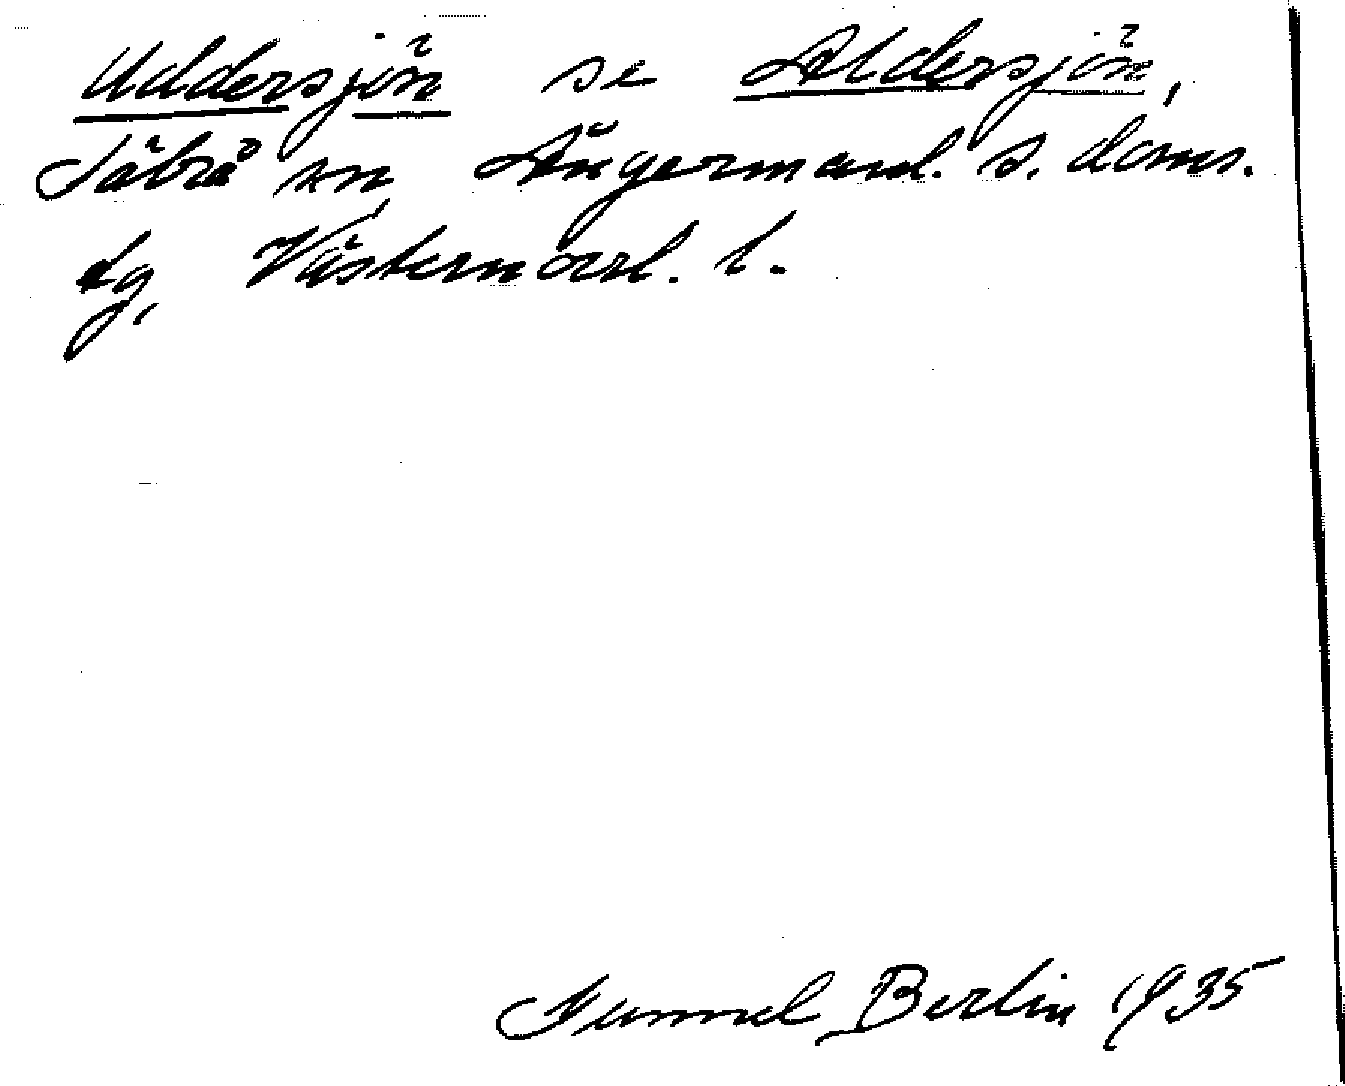 Uddersjön se Aldersjön,
Säbrå sn, Ångermanl. s. doms.
dg, Västernorrl. l.
Gunnel Berlin 1935